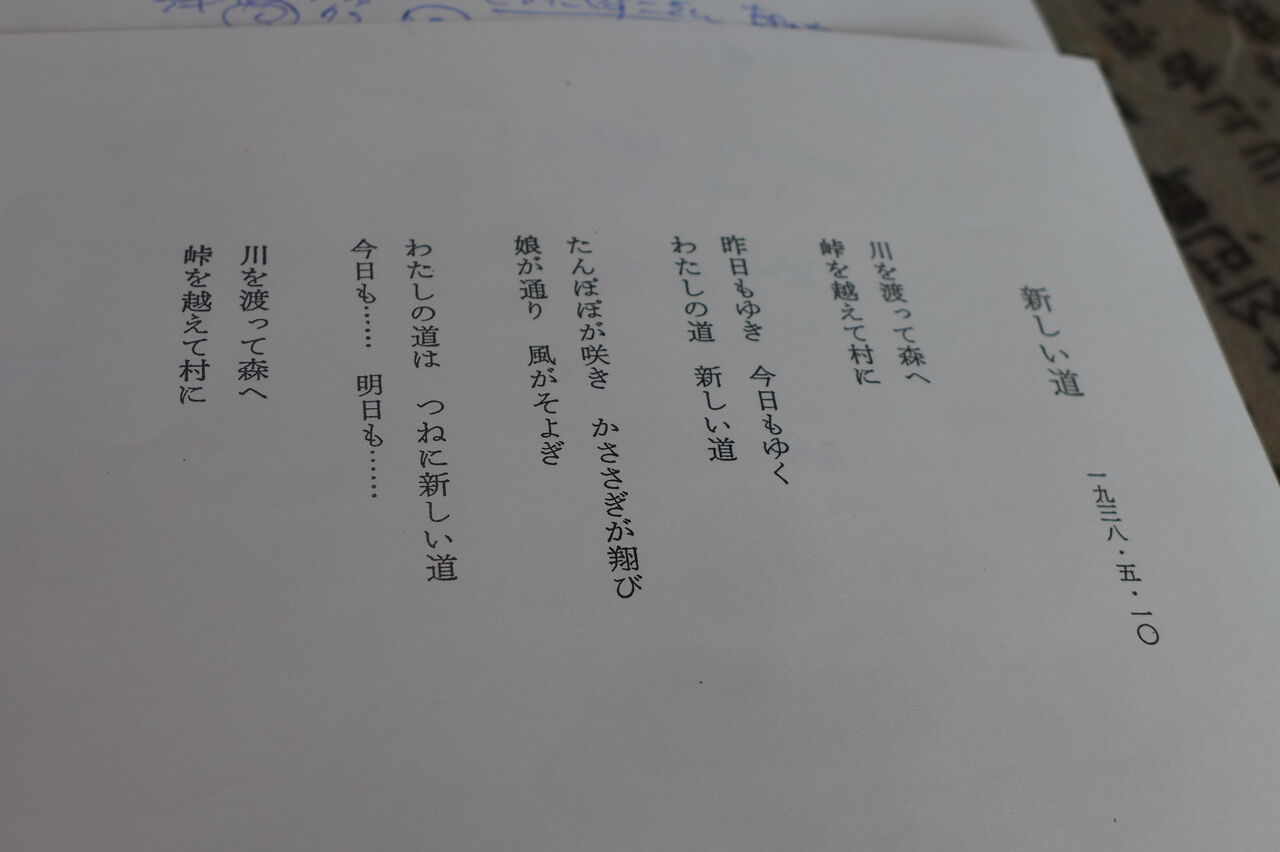 新しい道
一九三八・五・一〇
川を渡って森へ
峠を越えて村に
昨日もゆき　今日もゆく
わたしの道　新しい道
たんぽぽが咲き　かささぎが翔び
娘が通り　風がそよぎ
わたしの道は　つねに新しい道
今日も……　明日も……
川を渡って森へ
峠を越えて村に